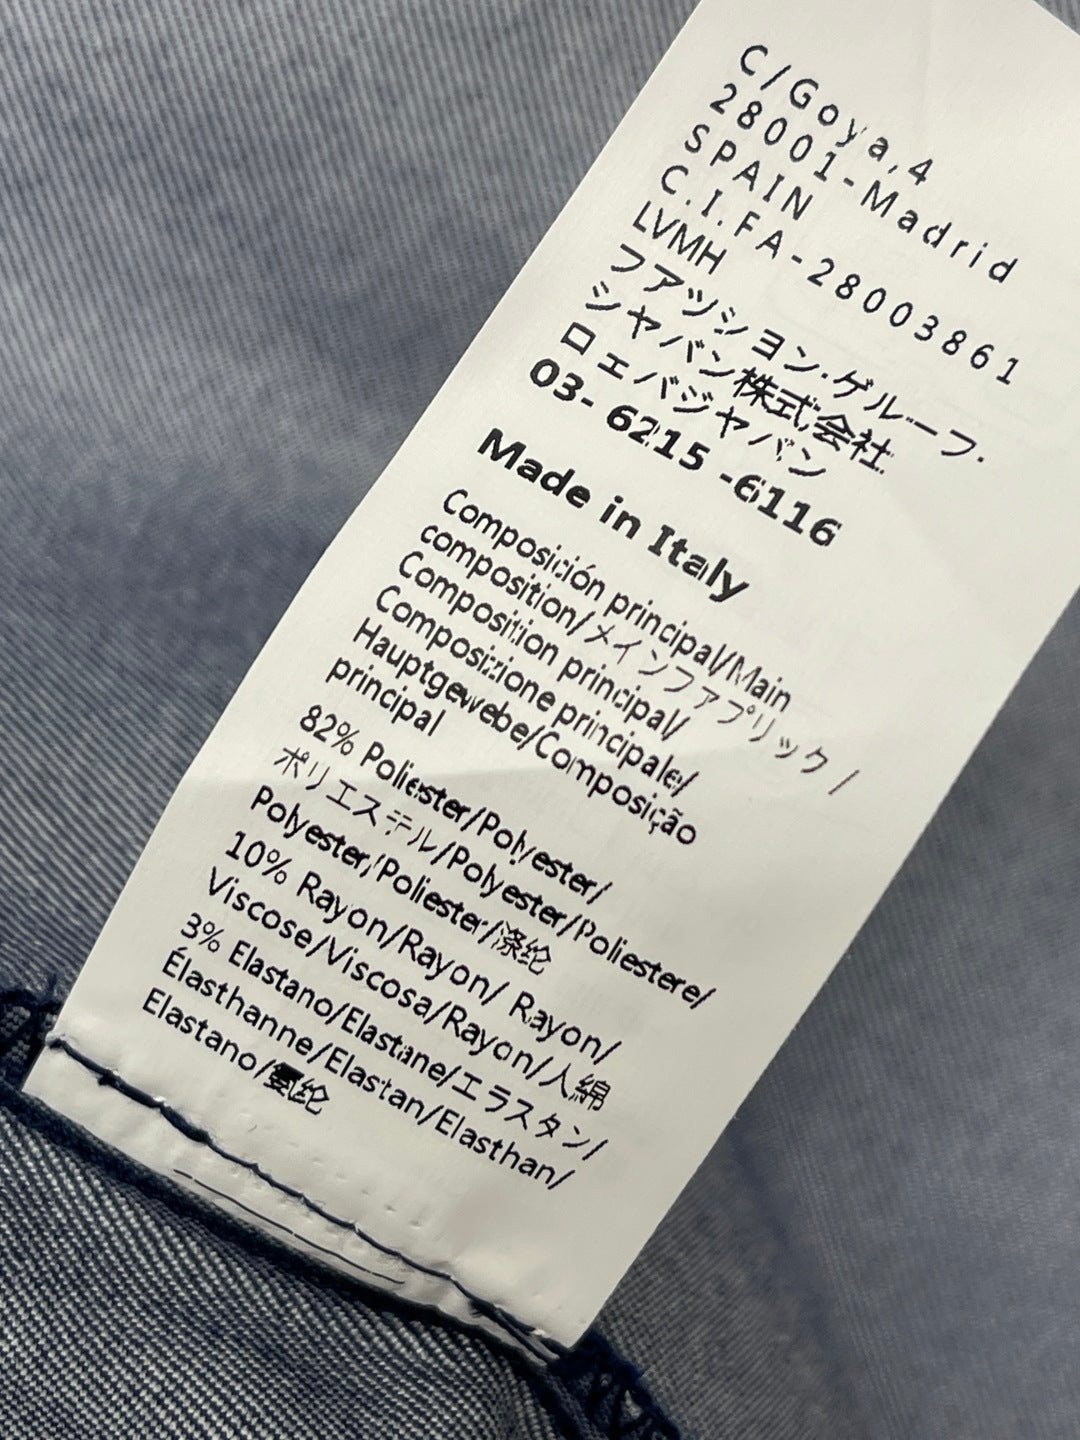 C/Goya,4
28001-Madrid
SPAIN
C.I.FA-28003861
LVMH
フアツシヨン·ゲルーフ·
シヤバン株式会社
ロェバジヤバン
03- 6215 -6116
Made in Italy
Composición principal/Main
composition/メインファプリック /
Composition principal/
Composizione principale/
Hauptgewebe/Composição
principal
82% Poliester/Polyester/
ポリエステル/Polyester/Poliestere/
Polyester/Poliester/涤纶
10% Rayon/Rayon/ Rayon/
Viscose/Viscosa/Rayon/人綿
3% Elastano/Elastane/エラスタン/
Élasthanne/Elastan/Elasthan/
Elastano/氨纶